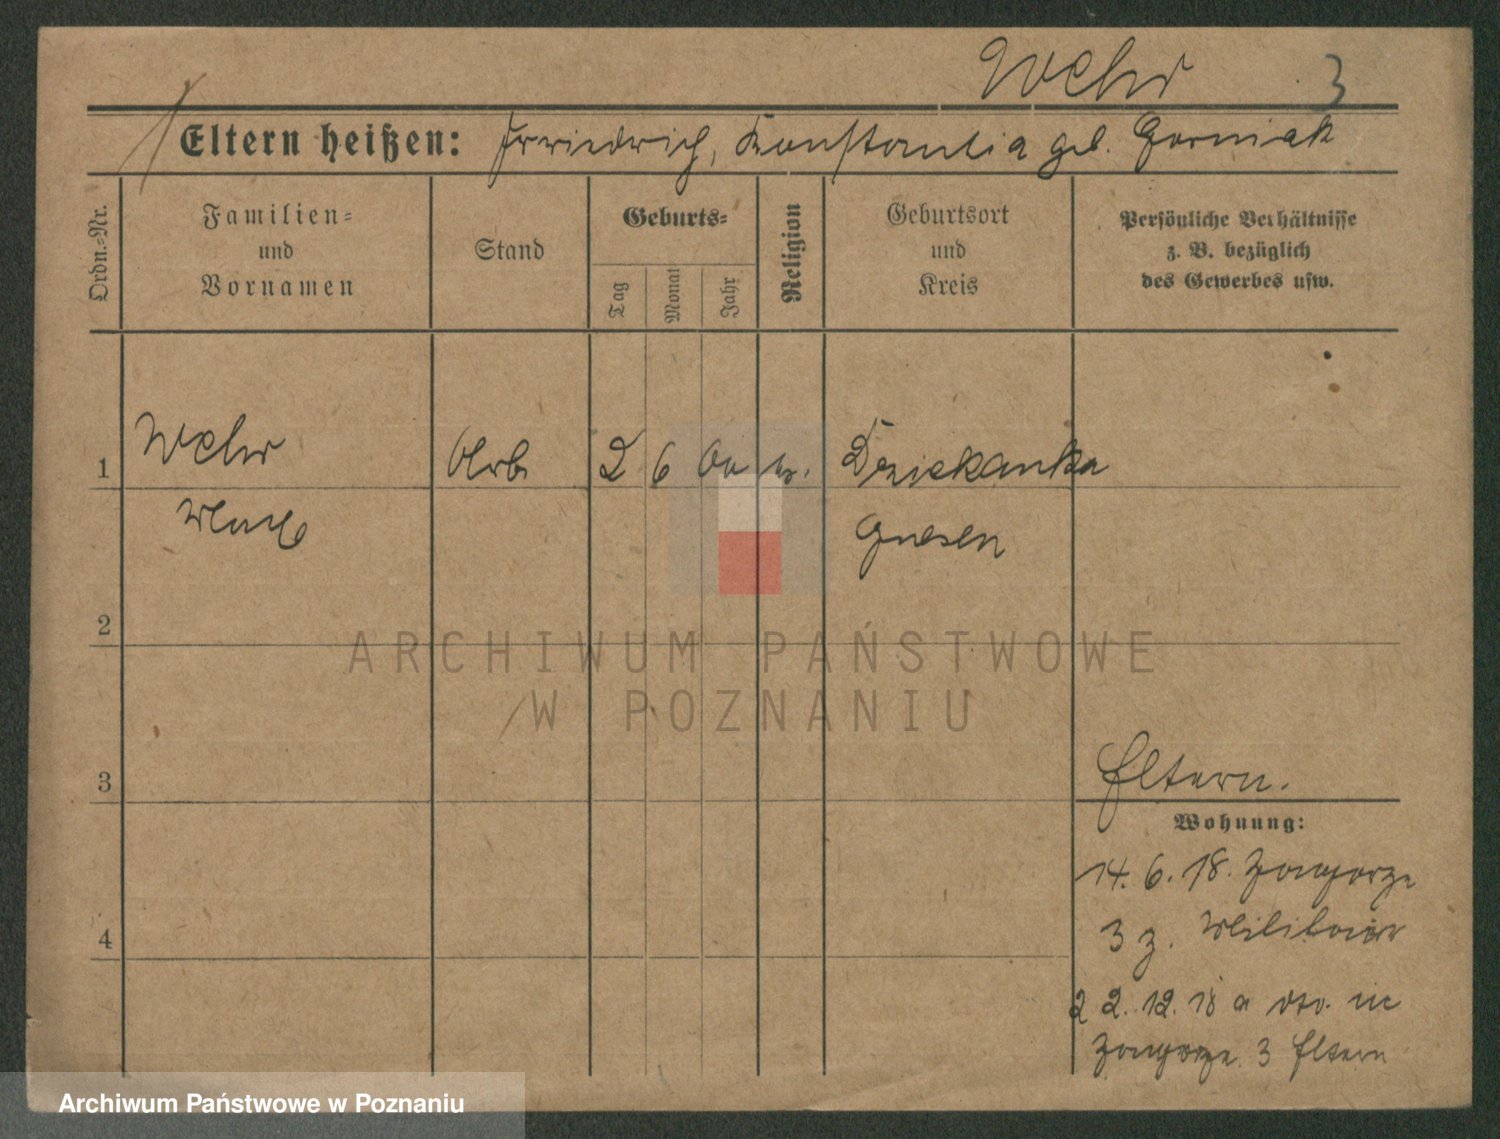 Wehr 3
Eltern heißen: Friedrich, Konstantia geb. Gorniak
Ordn.-Nr.
Familien-
und
Vornamen
Stand
Geburts-
Tag
Monat
Jahr
Religion
Geburtsort
und
Kreis
Persönliche Verhältnisse
z. B. bezüglich
des Gewerbes usw.
1 Wehr Arb 2 6 00 Dziekanka
Gnesen
2
ARCHIWUM PAŃSTWOWE
W POZNANIU
3
Eltern.
Wohnung:
14. 6. 18. Zongorze
3 z. Militair
4
22. 12. 18 a dto. in
Zongorze 3 Eltern
Archiwum Państwowe w Poznaniu